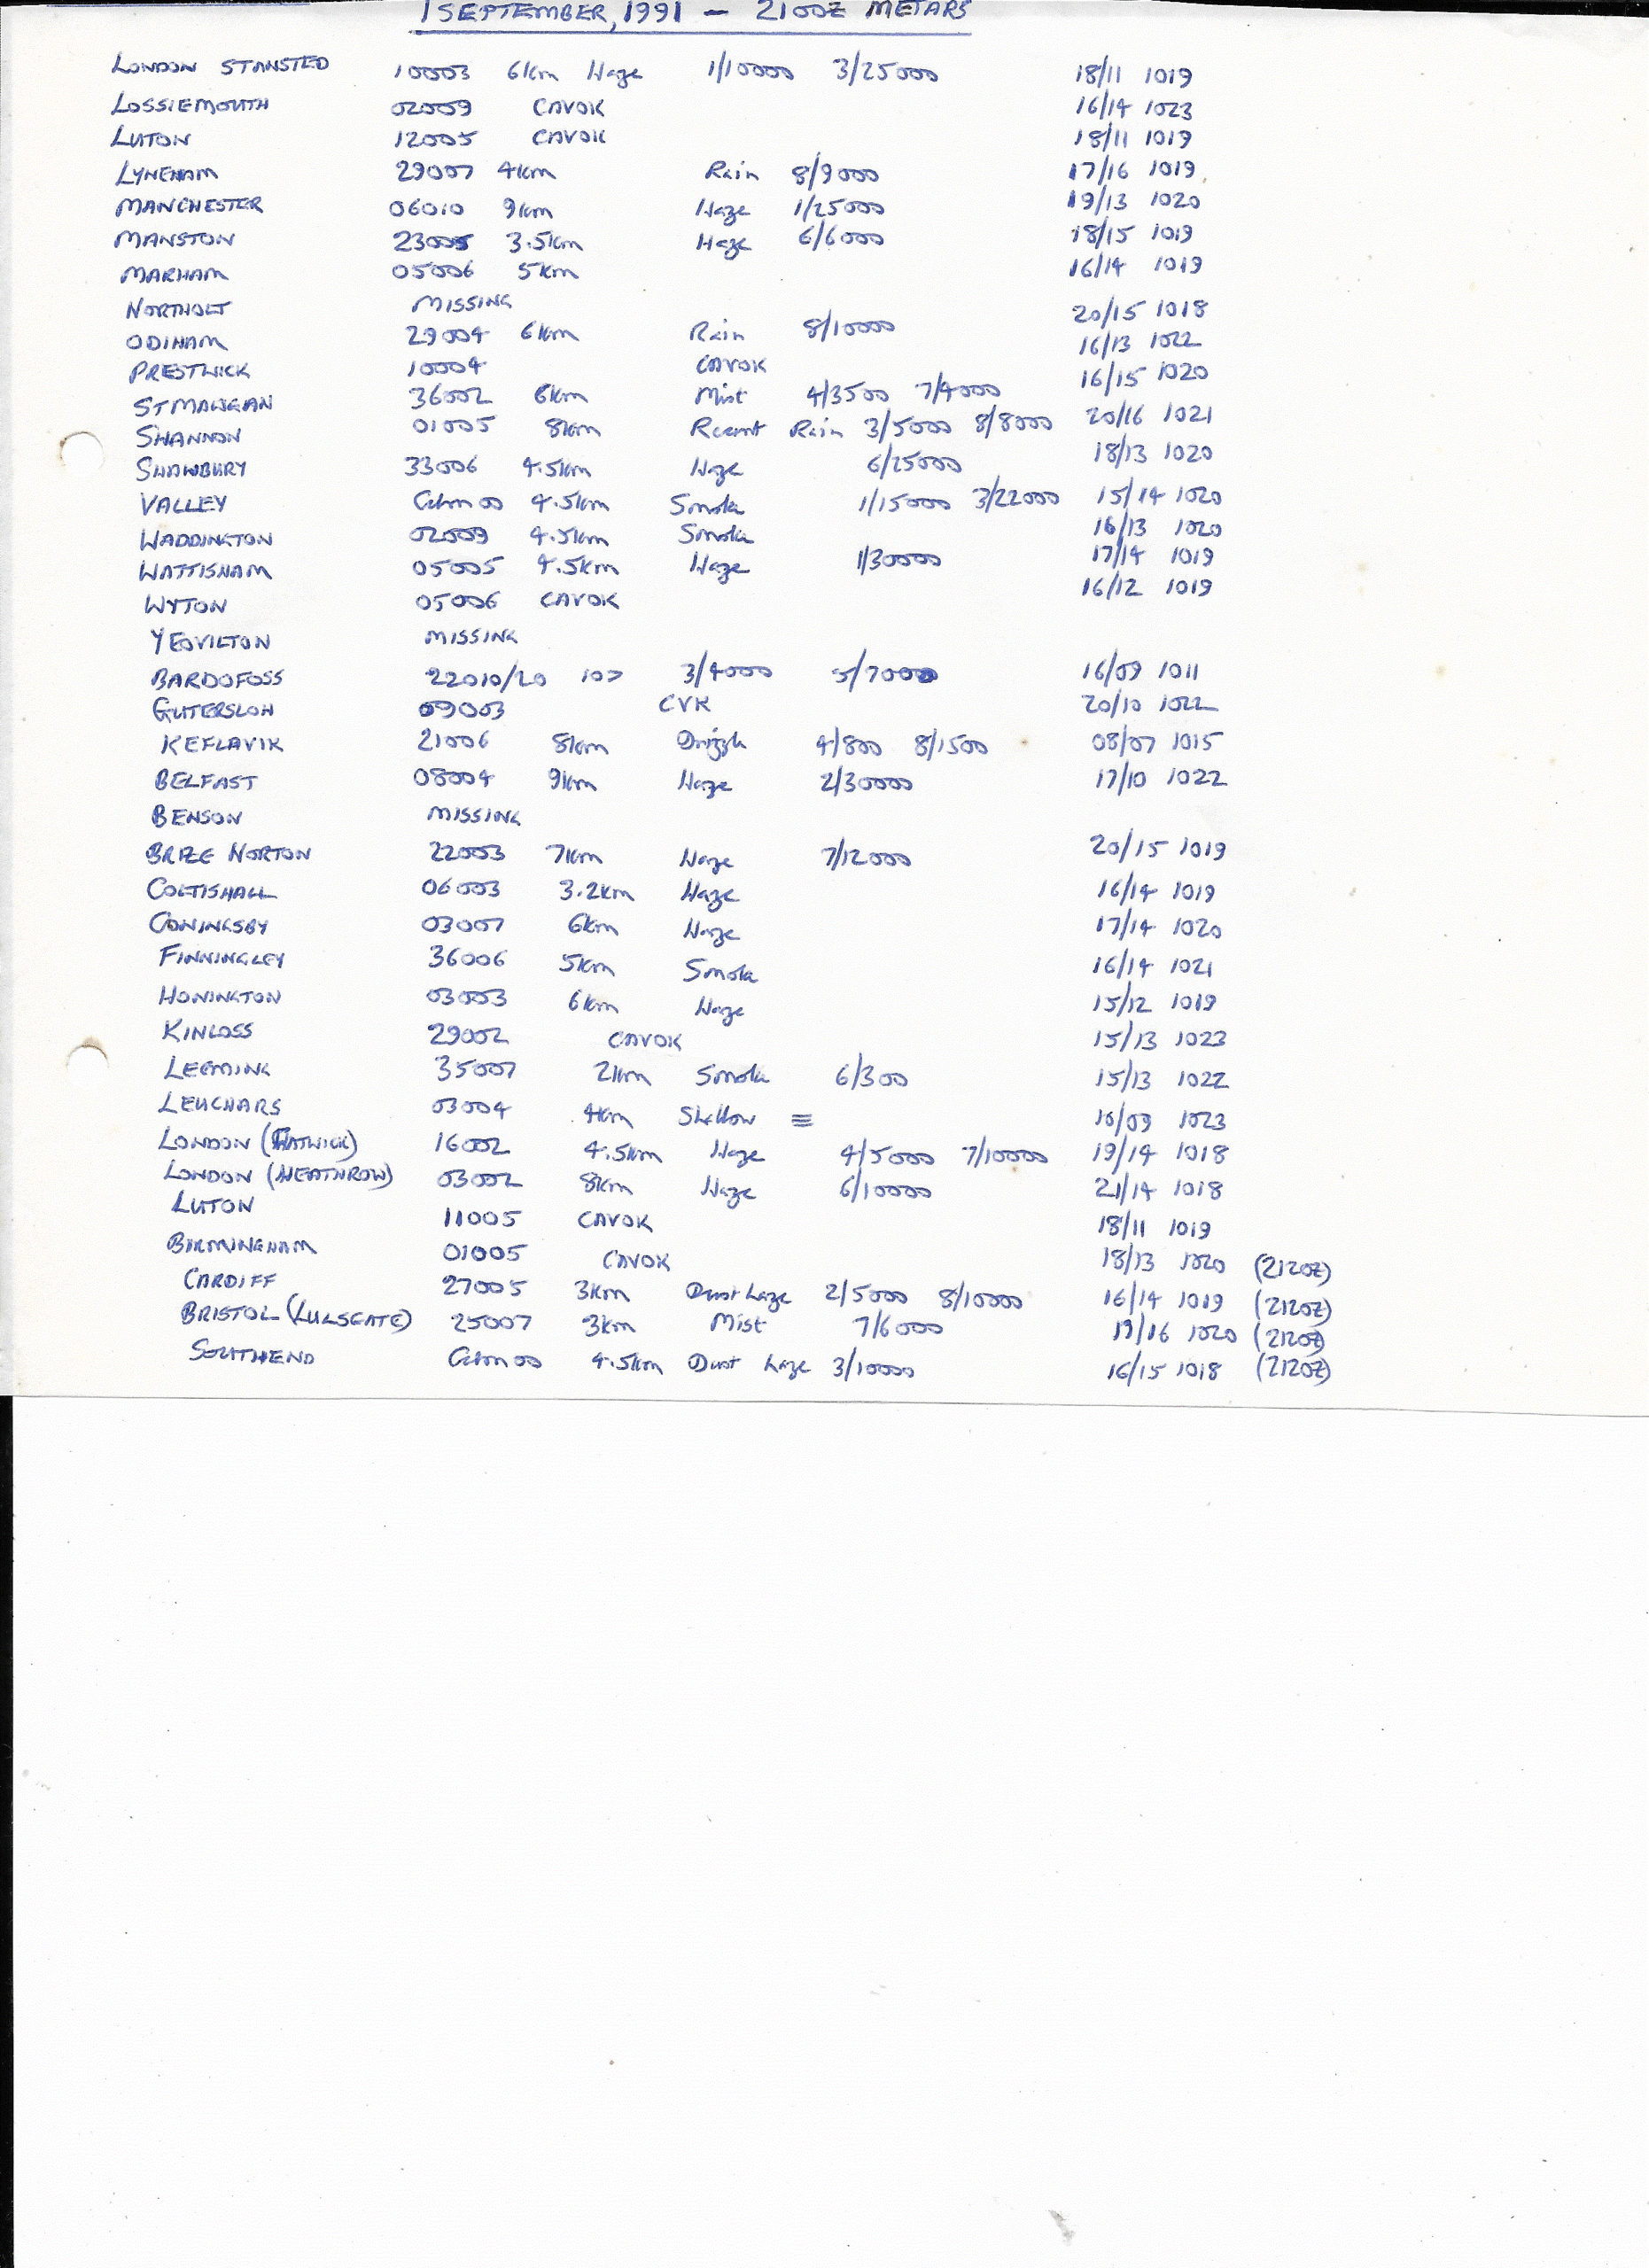 1 SEPTEMBER, 1991 – 2100Z METARS
LONDON STANSTED 10003 6km Haze 1/10000 3/25000 18/11 1019
LOSSIEMOUTH 02009 CAVOK 16/14 1023
LUTON 12005 CAVOK 18/11 1019
LYNEHAM 29007 4km Rain 8/9000 17/16 1019
MANCHESTER 06010 9km Haze 1/25000 19/13 1020
MANSTON 23005 3.5km Haze 6/6000 18/15 1019
MARHAM 05006 5km 16/14 1019
NORTHOLT MISSING
ODIHAM 29004 6km Rain 8/10000 20/15 1018
PRESTWICK 10004 CAVOK 16/13 1022
ST MAWGAN 36002 6km Mist 4/3500 7/4000 16/15 1020
SHANNON 01005 8km Recent Rain 3/5000 8/8000 20/16 1021
SHAWBURY 33006 4.5km Haze 6/25000 18/13 1020
VALLEY Calm 00 4.5km Smoke 1/15000 3/22000 15/14 1020
WADDINGTON 02009 4.5km Smoke 16/13 1020
WATTISHAM 05005 4.5km Haze 1/30000 17/14 1019
WYTON 05006 CAVOK 16/12 1019
YEOVILTON MISSING
BARDOFOSS 22010/20 10> 3/4000 5/7000 16/09 1011
GUTERSLOH 09003 CVK 20/10 1022
KEFLAVIK 21006 8km Drizzle 4/800 8/1500 08/07 1015
BELFAST 08004 9km Haze 2/30000 17/10 1022
BENSON MISSING
BRIZE NORTON 22003 7km Haze 7/12000 20/15 1019
COLTISHALL 06003 3.2km Haze 16/14 1019
CONINGSBY 03007 6km Haze 17/14 1020
FINNINGLEY 36006 5km Smoke 16/14 1021
HONINGTON 03003 6km Haze 15/12 1019
KINLOSS 29002 CAVOK 15/13 1023
LEEMING 35007 2km Smoke 6/300 15/13 1022
LEUCHARS 03004 4km Shallow ≡ 10/09 1023
LONDON (GATWICK) 16002 4.5km Haze 4/5000 7/10000 19/14 1018
LONDON (HEATHROW) 03002 8km Haze 6/10000 21/14 1018
LUTON 11005 CAVOK 18/11 1019
BIRMINGHAM 01005 CAVOK 18/13 1020 (2120Z)
CARDIFF 27005 3km Dust haze 2/5000 8/10000 16/14 1019 (2120Z)
BRISTOL (LULSGATE) 25007 3km Mist 7/6000 17/16 1020 (2120Z)
SOUTHEND Calm 00 4.5km Dust haze 3/10000 16/15 1018 (2120Z)